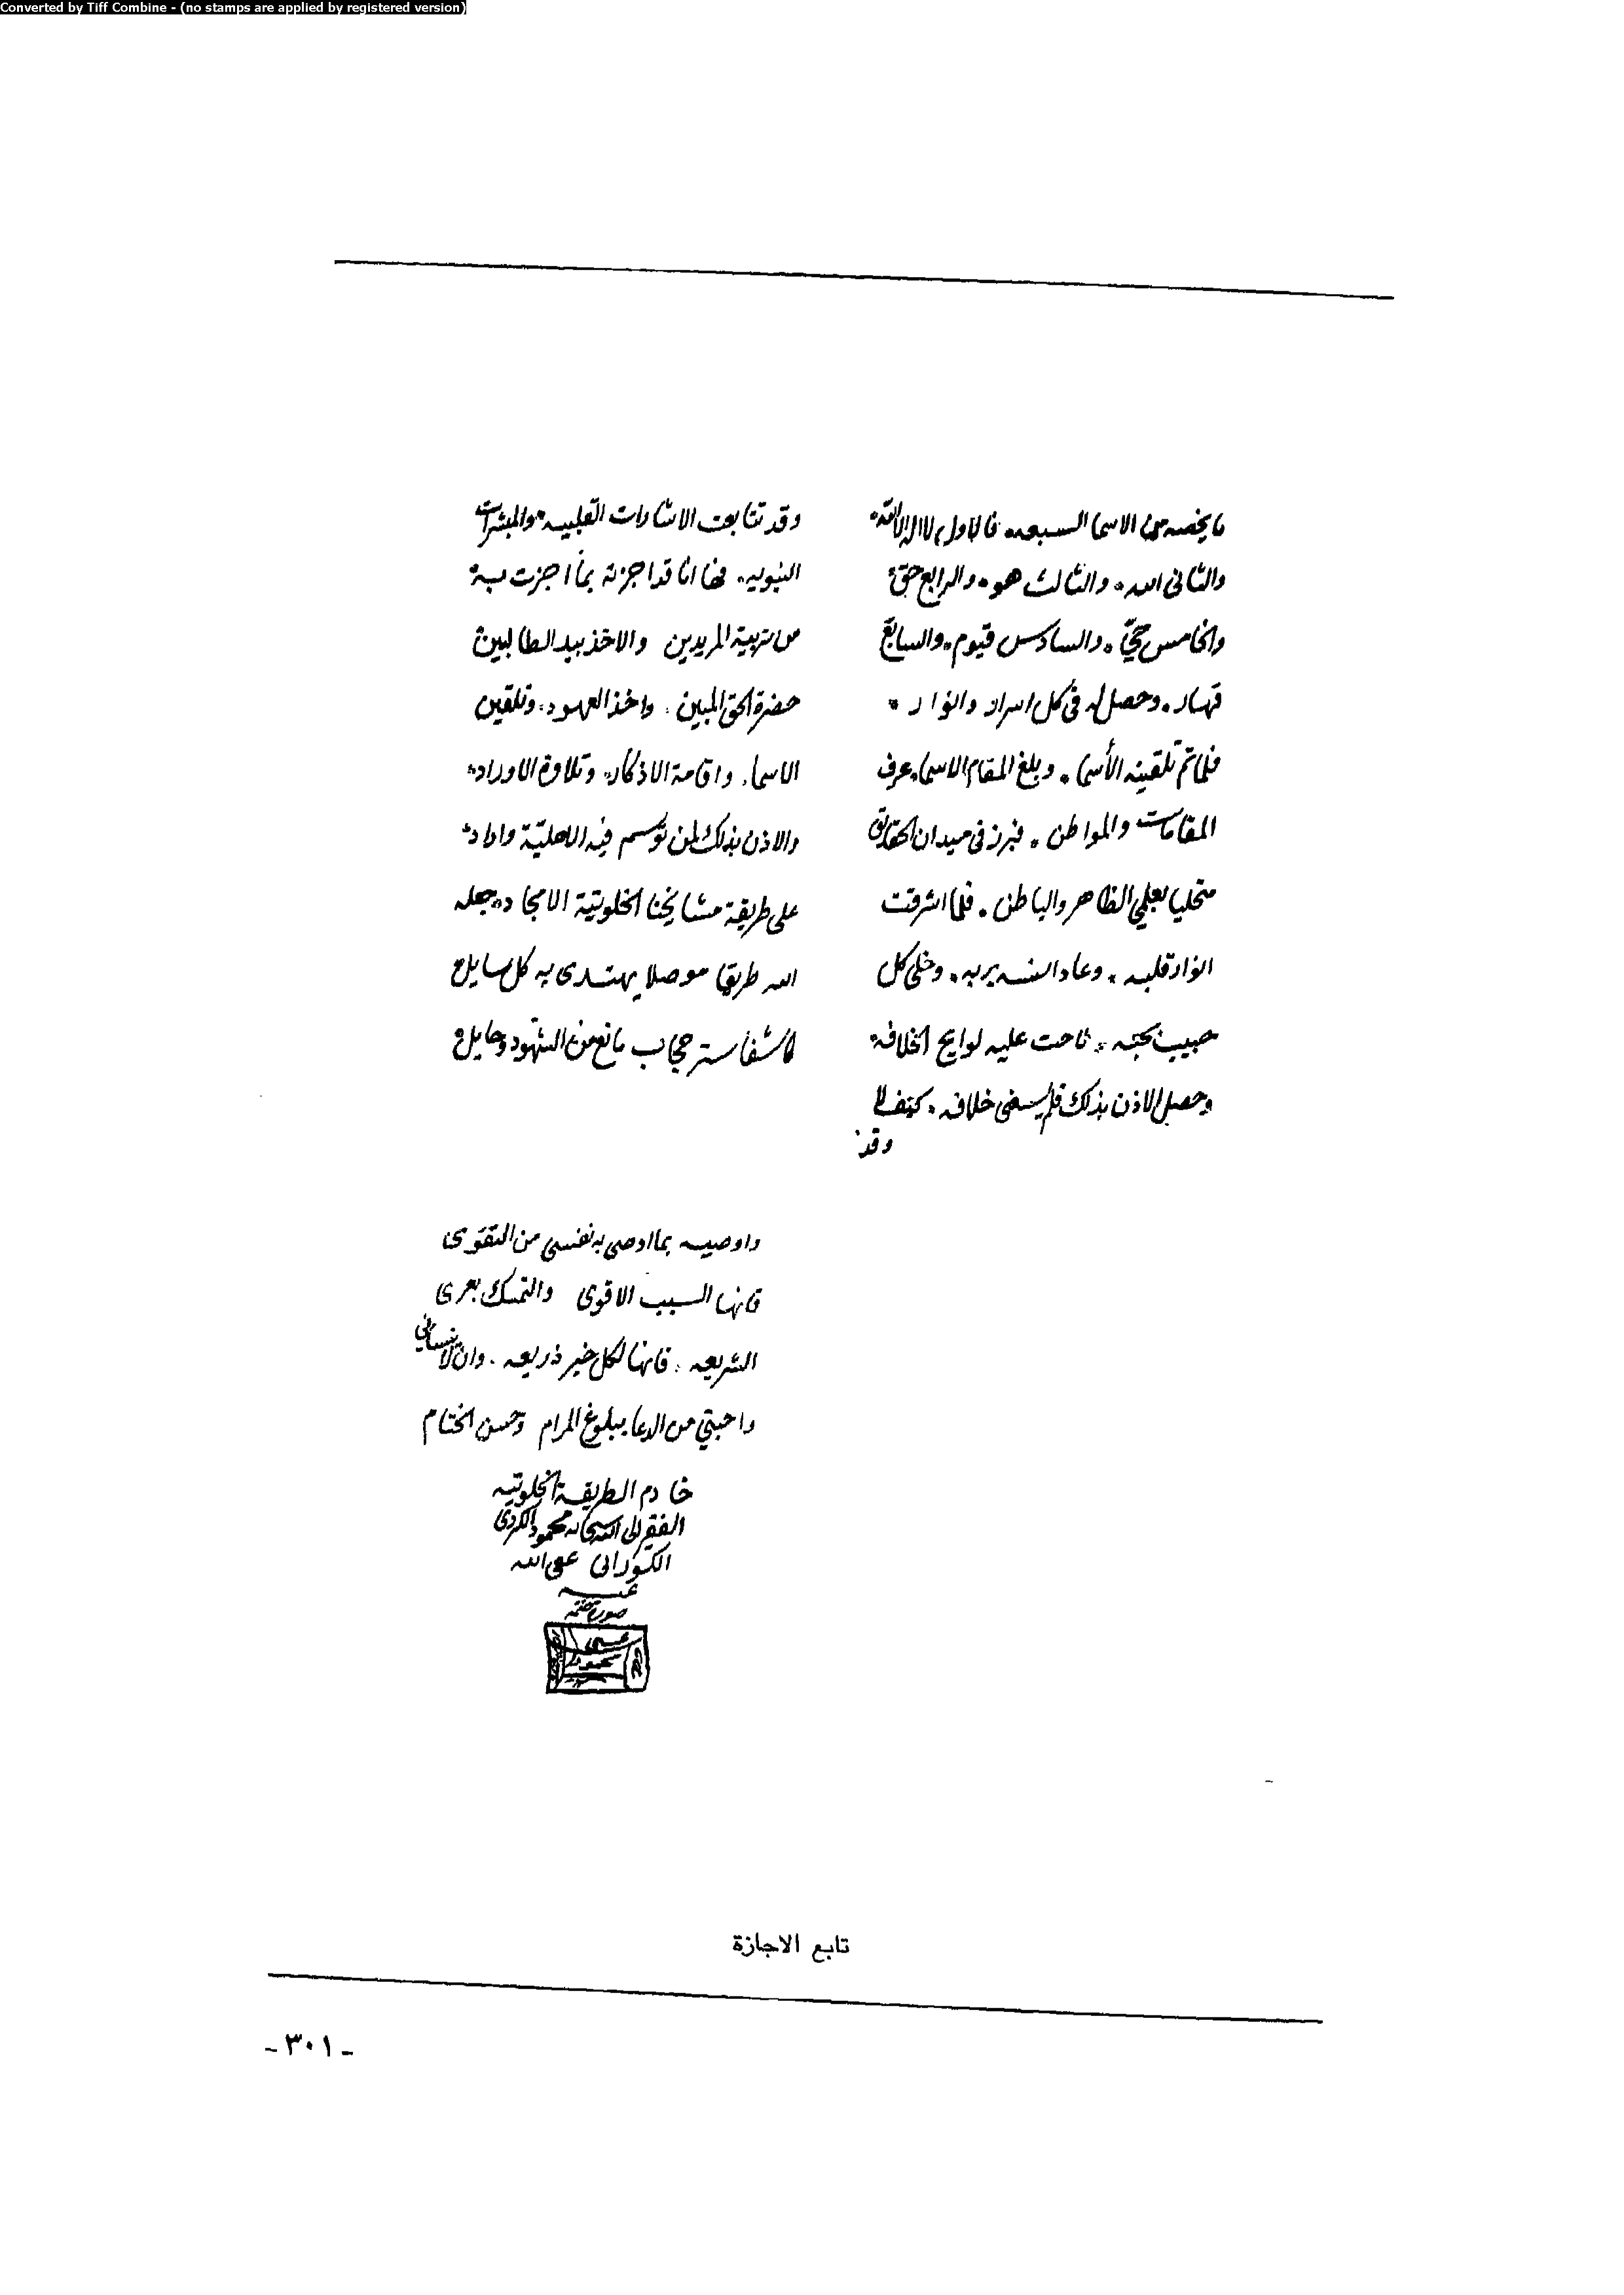 Converted by Tiff Combine - (no stamps are applied by registered version)
ما يخصه من الاسما السبعه فالاول لا اله الا الله
والثانى الله والثالث هو والرابع حق
والخامس حيّ والسادس قيوم والسابع
قهار وحصل له فى كل اسرار وانوار
فلما تم تلقينه الأسما وبلغ المقام الاسما عرف
المقامات والمواطن فبرز فى ميدان الحقايق
متحليا بعلمي الظاهر والباطن فلما اشرقت
انوار قلبه وعاد انسه بربه وخلى كل
حبيب بحبه لاحت عليه لوايح الخلافه
وحصل الاذن بذلك فلم يسغنى خلافه كيف لا
وقد
وقد تتابعت الاشارات القلبيه والمبشرات
النبويه فها انا قد اجزته بما اجزت به
من تربية المريدين والاخذ بيد الطالبين
حضرة الحق المبين واخذ العهود وتلقين
الاسما واقامة الاذكار وتلاوة الاوراد
والاذن بذلك لمن توسم فيه الاهليّة واراد
على طريقة مشايخنا الخلوتية الامجاد جعله
الله طريقا موصلا يهتدى به كل سايل
كاشفا ستر حجاب مانع من الشهود وحايل
واوصيه بما اوصى به نفسى من التقوى
فانها السبب الاقوى والتمسك بعرى
الشريعه فانها لكل خير ذريعه وان لا ينساني
واحبتي من الدعا ببلوغ المرام وحسن الختام
خادم الطريقة الخلوتيه
الفقير الى الله سبحانه محمود الكردى
الكورانى عفى الله
عنه
صورة ختمه
تابع الاجازة
- ٣٠١ -